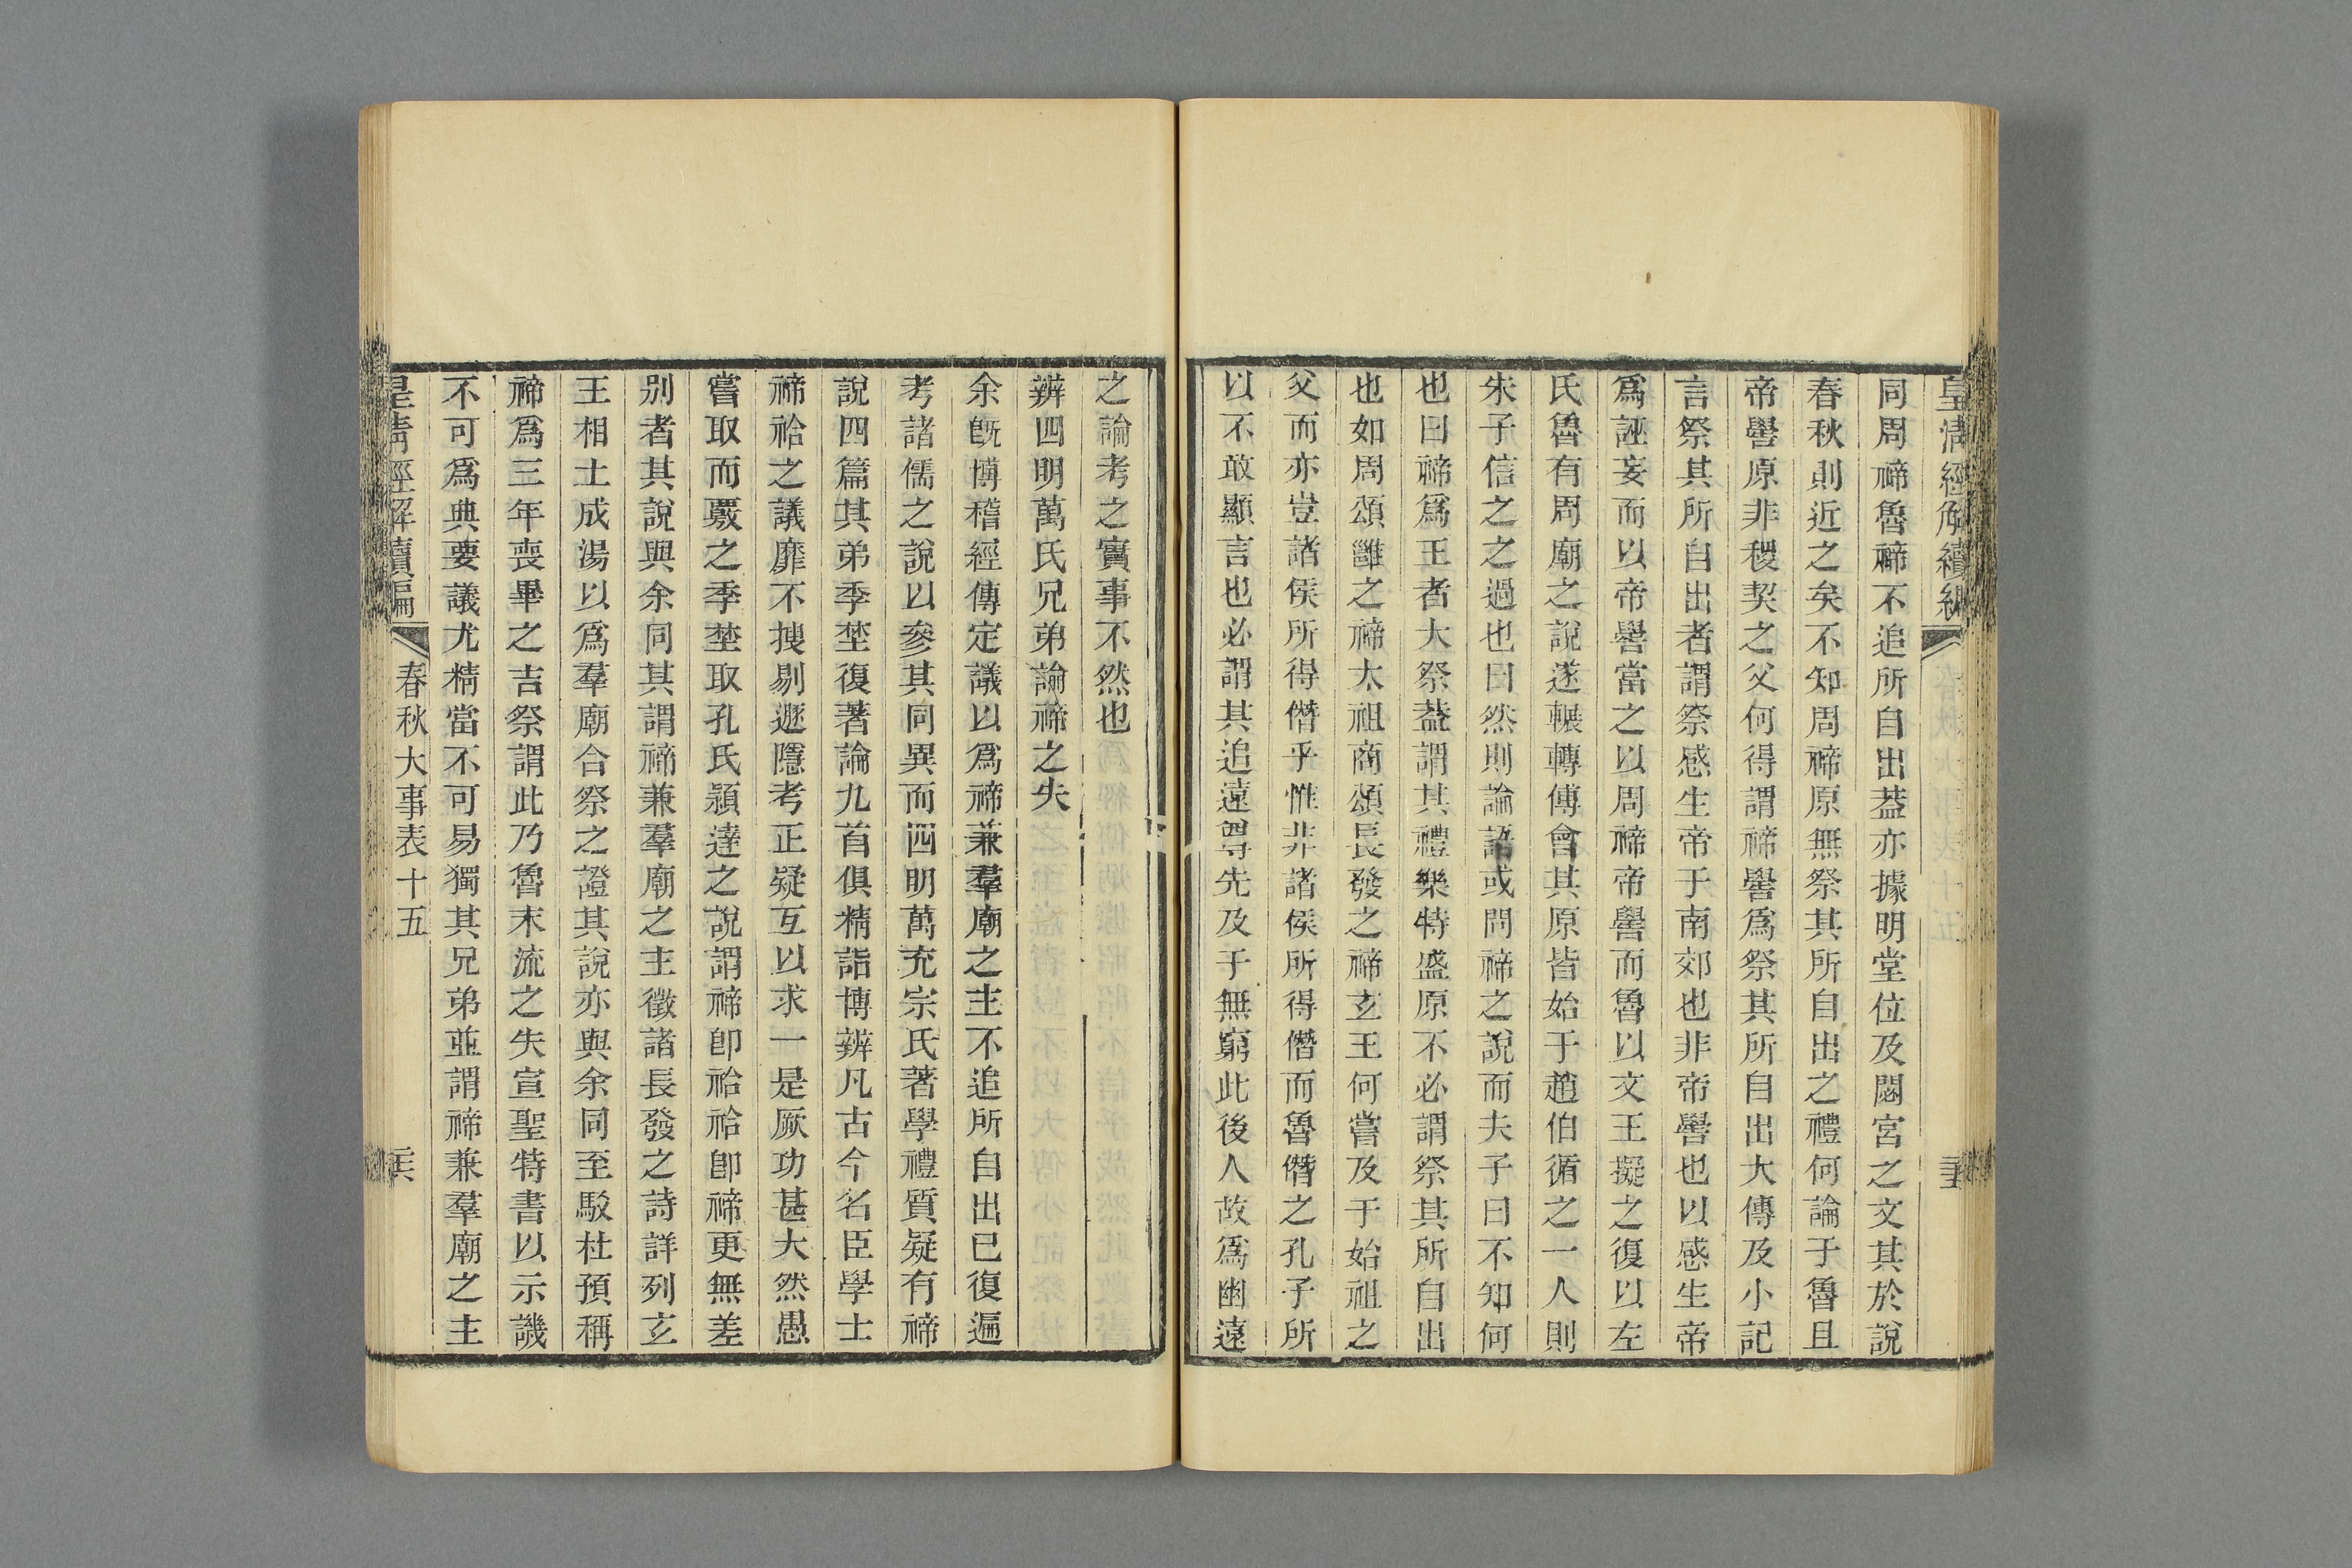 皇清經解續編
同周禘魯禘不追所自出葢亦據明堂位及閟宮之文其於說
春秋則近之矣不知周禘原無祭其所自出之禮何論于魯且
帝嚳原非稷契之父何得謂禘嚳爲祭其所自出大傳及小記
言祭其所自出者謂祭感生帝于南郊也非帝嚳也以感生帝
爲誣妄而以帝嚳當之以周禘帝嚳而魯以文王擬之復以左
氏魯有周廟之說遂輾轉傅會其原皆始于趙伯循之一人則
朱子信之之過也曰然則論語或問禘之說而夫子曰不知何
也曰禘爲王者大祭葢謂其禮樂特盛原不必謂祭其所自出
也如周頌雝之禘太祖商頌長發之禘玄王何嘗及于始祖之
父而亦豈諸侯所得僭乎惟非諸侯所得僭而魯僭之孔子所
以不敢顯言也必謂其追遠尊先及于無窮此後人故爲幽遠
之論考之實事不然也
辨四明萬氏兄弟論禘之失
余旣博稽經傳定議以爲禘兼羣廟之主不追所自出已復遍
考諸儒之說以參其同異而四明萬充宗氏著學禮質疑有禘
說四篇其弟季埜復著論九首俱精詣博辨凡古今名臣學士
禘祫之議靡不搜剔遯隱考正疑互以求一是厥功甚大然愚
嘗取而覈之季埜取孔氏潁達之說謂禘卽祫祫卽禘更無差
別者其說與余同其謂禘兼羣廟之主徵諸長發之詩詳列玄
王相土成湯以爲羣廟合祭之證其說亦與余同至駁杜預稱
禘爲三年喪畢之吉祭謂此乃魯末流之失宣聖特書以示譏
不可爲典要議尤精當不可易獨其兄弟並謂禘兼羣廟之主
皇清經解續編
春秋大事表十五